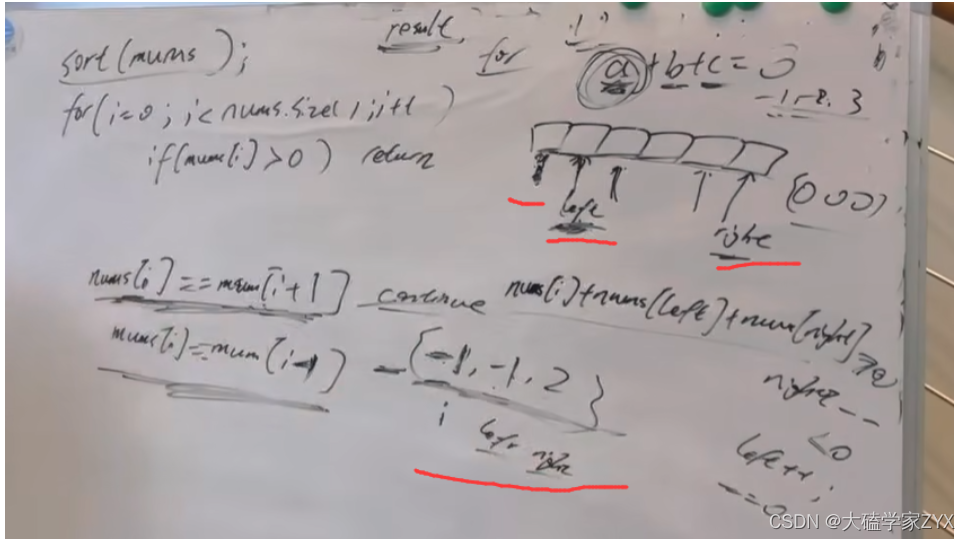 result
sort(nums);
for
a+b+c=0
-1,-2,3
for(i=0; i<nums.size(); i++)
if(nums[i]>0) return
left
right
(000)
nums[i]==num[i+1] continue
nums[i]+nums[left]+num[right]>0
right--
nums[i]==num[i-1]
{-1,-1,2}
i left right
<0
left++;
==0
CSDN @大磕学家ZYX